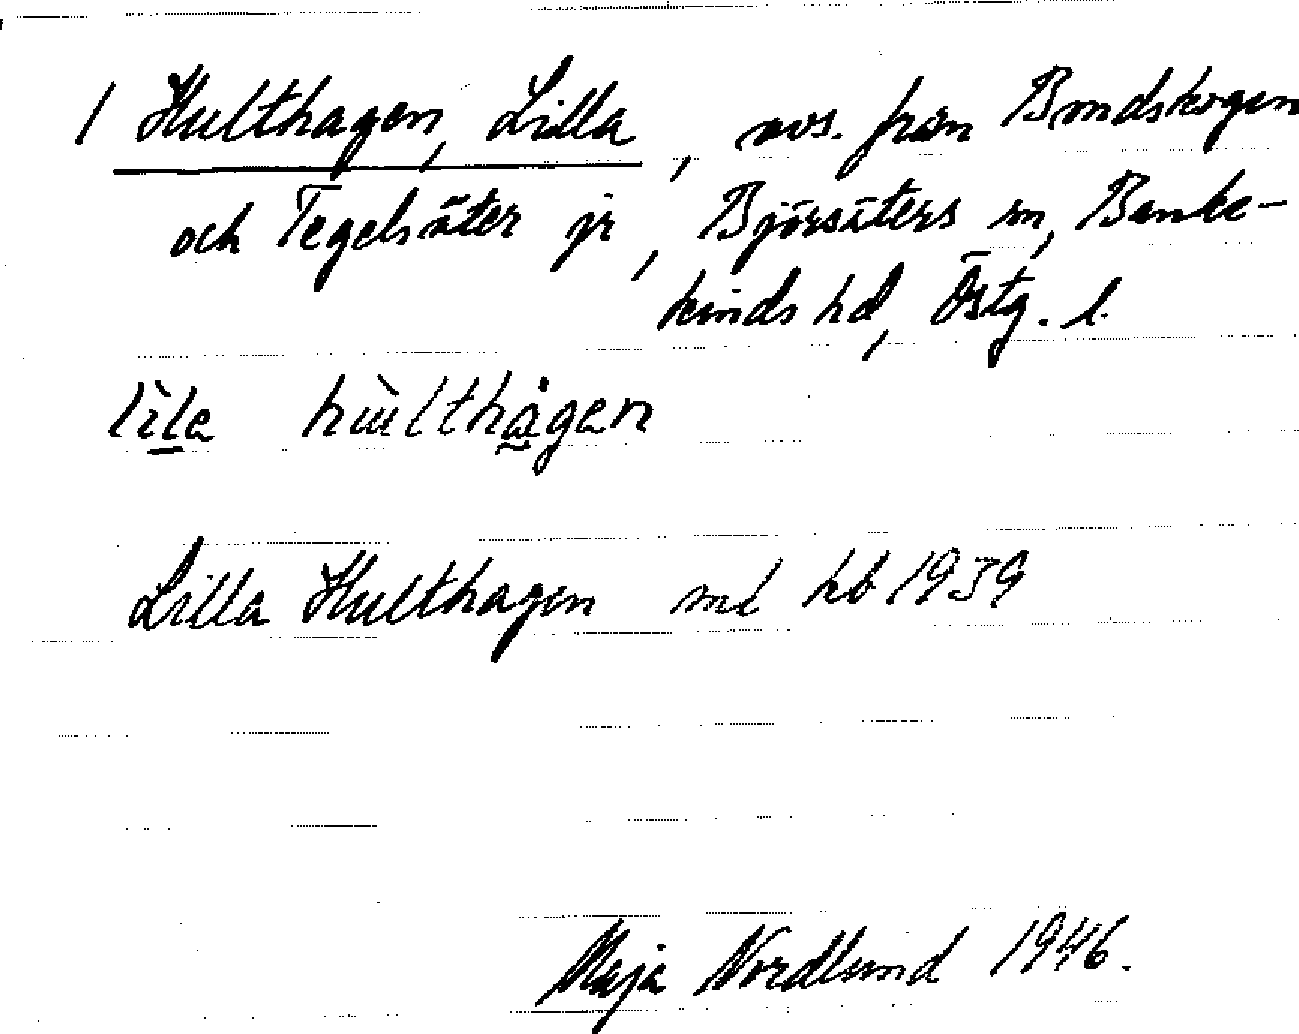 1 Hulthagen, Lilla, avs. från Bondskogen
och Tegelsäter jr, Björsäters sn, Banke-
kinds hd, Östg. l.
Lilla Hulthagen ml hb 1939
Maja Nordlund 1946.